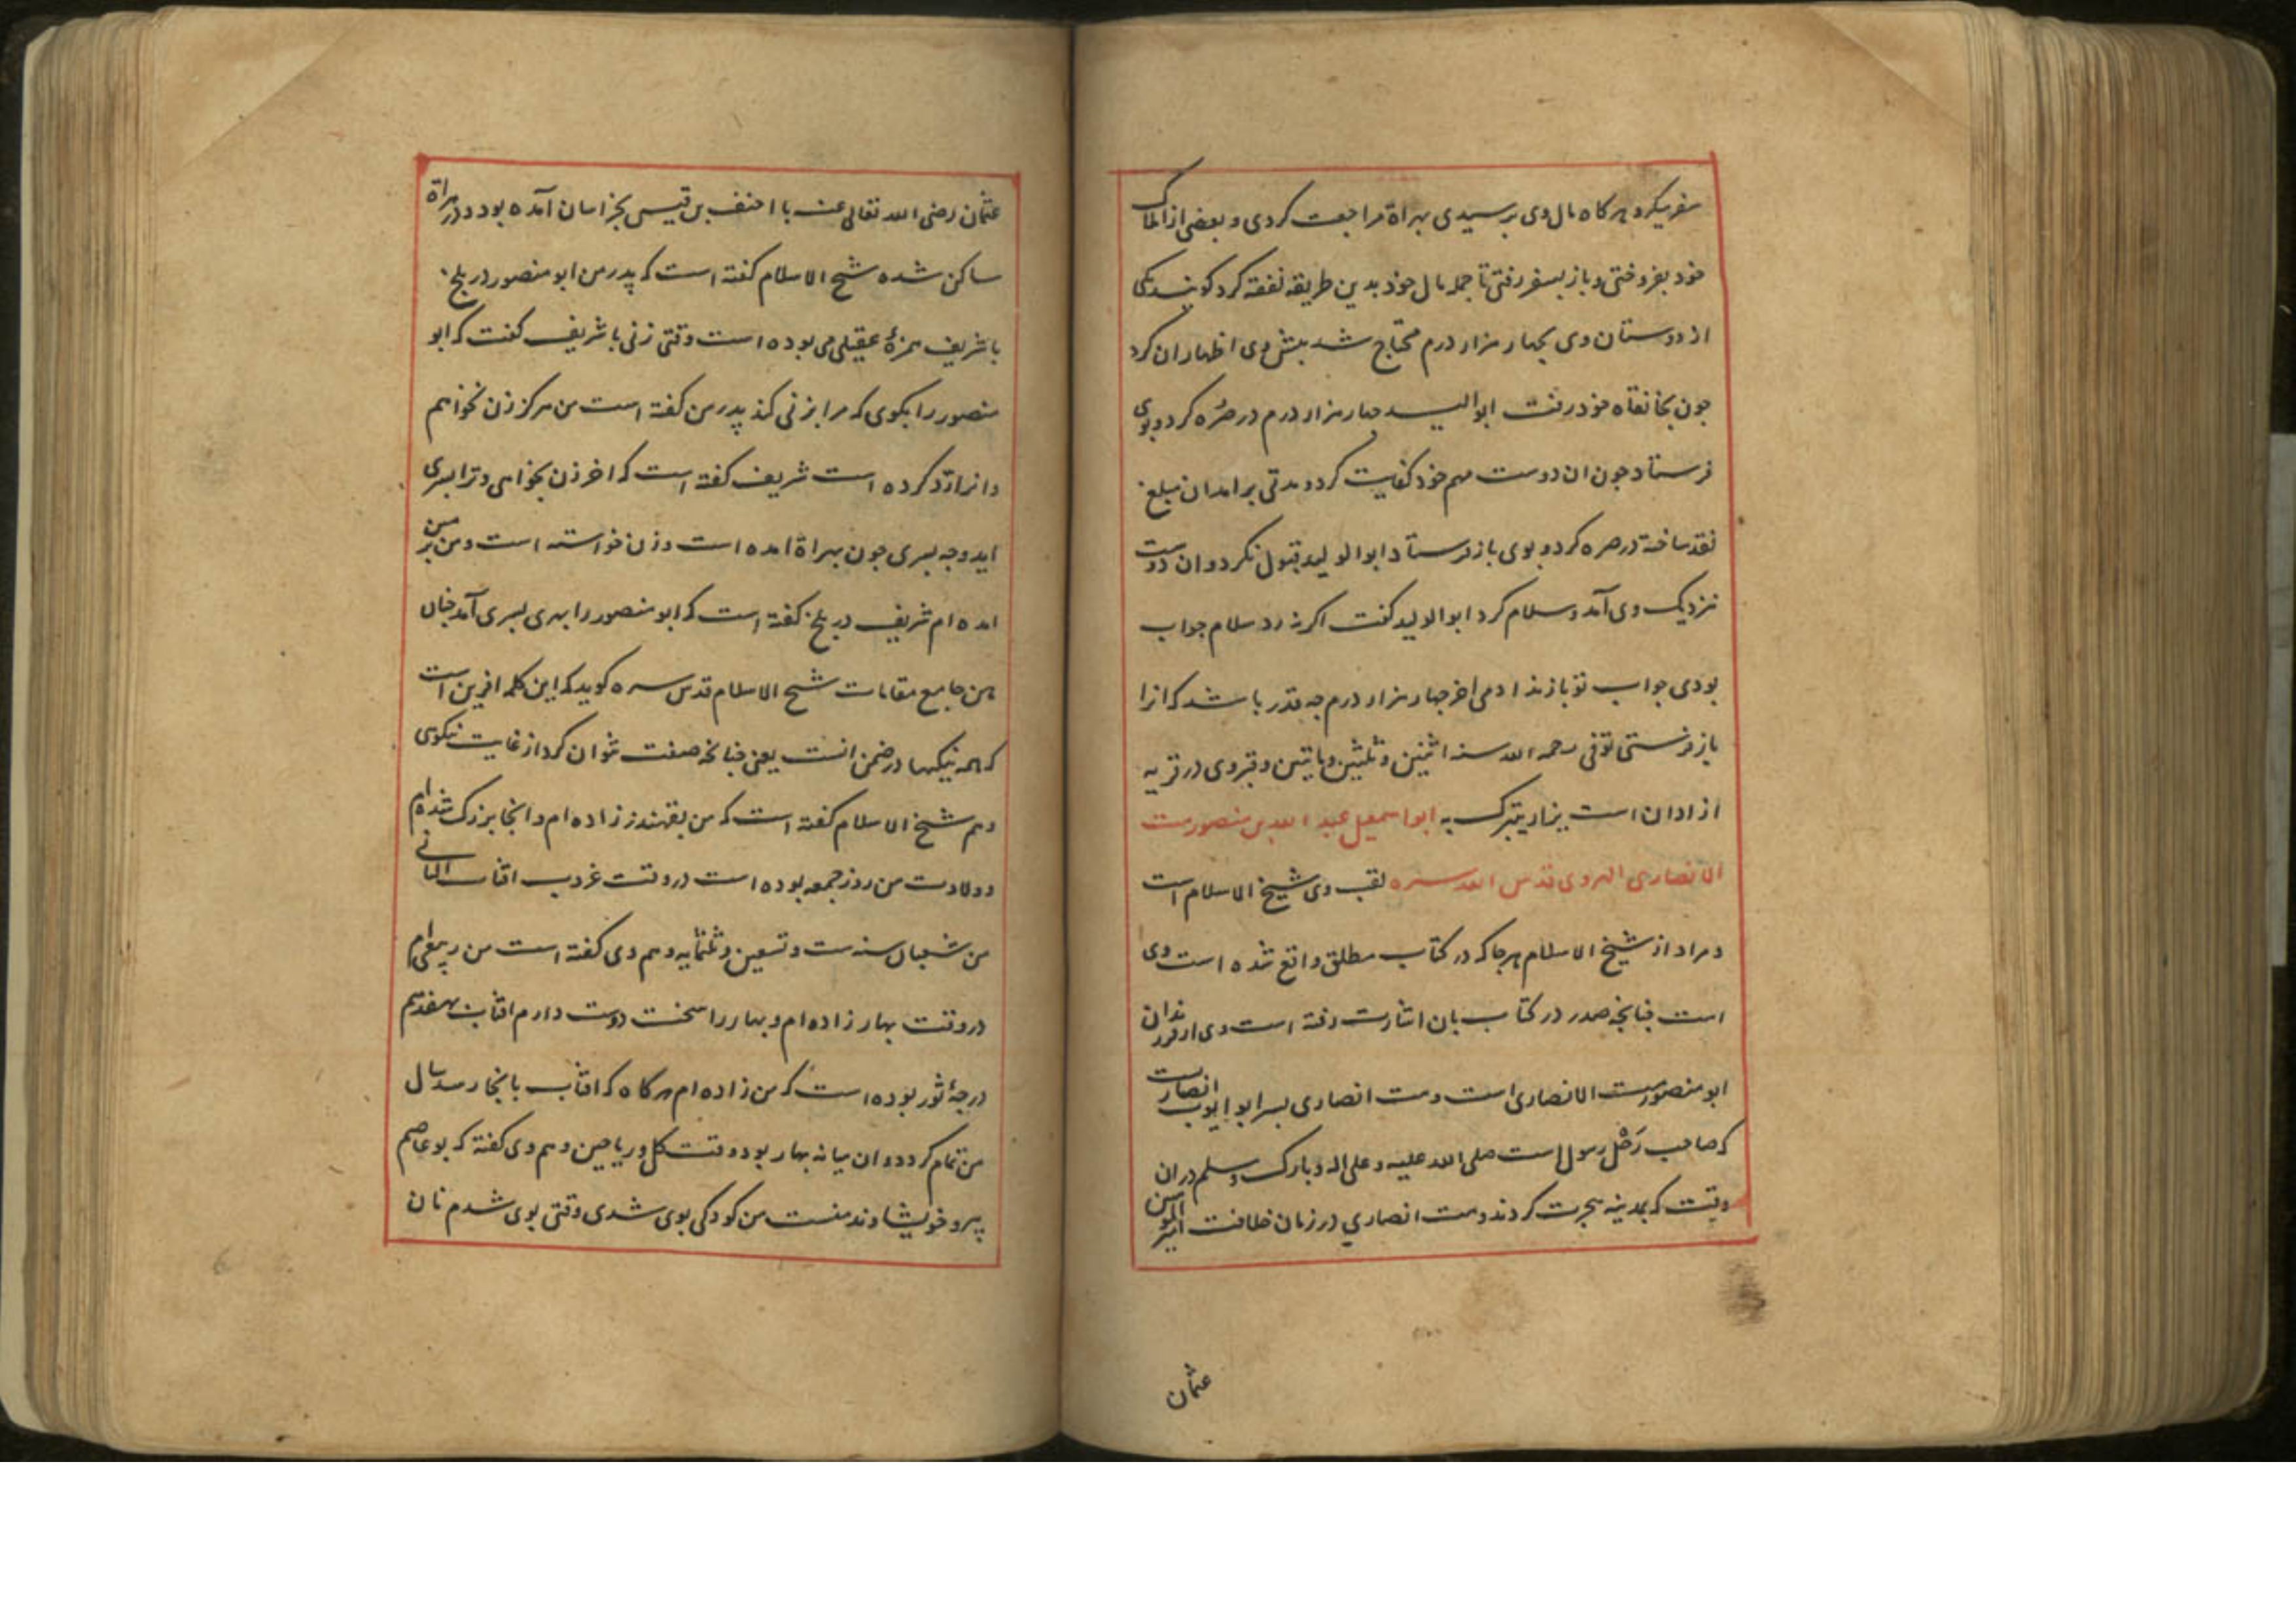 سفر میکرد هرکاه مال وی برسیدی بهراة مراجعت کردی و بعضی از املاک
خود بفروختی و باز بسفر رفتی تا جمله مال خود بدین طریقه نفقه کرد کویند یکی
از دوستان وی بچهار هزار درم محتاج شد بیش وی اظهار ان کرد
جون بخانقاه خود رفت ابوالولید جهار هزار درم در صُرّه کرد و بوی
فرستاد جون ان دوست مهم خود کفایت کرد و مدتی برامد ان مبلغ
نقد ساخته در صره کرد و بوی باز فرستاد ابوالولید قبول نکرد و ان دوست
نزدیک وی آمد و سلام کرد ابوالولید کفت اکر نه رد سلام جواب
بودی جواب تو باز ندادمی اخر جهار هزار درم جه قدر باشد که انرا
باز فرستی توفی رحمه الله سنه اثنین و ثلثین و مایتین و قبر وی در قریه
ازادان است یزار یتبرک به ابو اسمعیل عبد الله بن منصور مت
الانصاری الهروی قدس الله سره لقب وی شیخ الاسلام است
و مراد از شیخ الاسلام هرجا که در کتاب مطلق واقع شده است وی
است جنانجه صدر در کتاب بان اشارت رفته است وی از فرزندان
ابو منصور مت الانصاری است و مت انصاری بسر ابو ایوب انصاریست
که صاحب رَحْل رسول است صلی الله علیه و علی اله و بارک و سلم در ان
وقت که بمدینه هجرت کردند و مت انصاری در زمان خلافت امیر المومنین
عثمان
عثمان رضی الله تعالی عنه با احنف بن قیس بخراسان آمده بود و در هراة
ساکن شده شیخ الاسلام کفته است که پدر من ابو منصور در بلخ
با شریف حمزهٔ عقیلی می بوده است وقتی زنی با شریف کفت که ابو
منصور را بکوی که مرا بزنی کند پدر من کفته است من هرکز زن نخواهم
و انرا رد کرده است شریف کفته است که اخر زن بخواهی و ترا بسری
اید و جه بسری جون بهراة امده است و زن خواسته است و من بر من
امده ام شریف در بلخ کفته است که ابو منصور را بهری بسری آمد جنان
هن جامع مقامات شیخ الاسلام قدس سره کوید که این کلمه افرین است
که همه نیکیها در ضمن انست یعنی جنانجه صفت نتوان کرد از غایت نیکوی
و هم شیخ الاسلام کفته است که من بقهندز زاده ام و انجا بزرک شده ام
و ولادت من روز جمعه بوده است در وقت غروب افتاب الثانی
من شعبان سنه ست و تسعین و ثلثمایه و هم وی کفته است من ربیعی ام
در وقت بهار زاده ام و بهار را سخت دوست دارم افتاب بهفدهم
درجهٔ ثور بوده است که من زاده ام هرکاه که افتاب بانجا رسد سال
من تمام کردد و ان میانه بهار بود وقت کل و ریاحین و هم وی کفته که بو عاصم
پیر و خویشاوند منست من کودکی بوی شدی وقتی بوی شدم نان